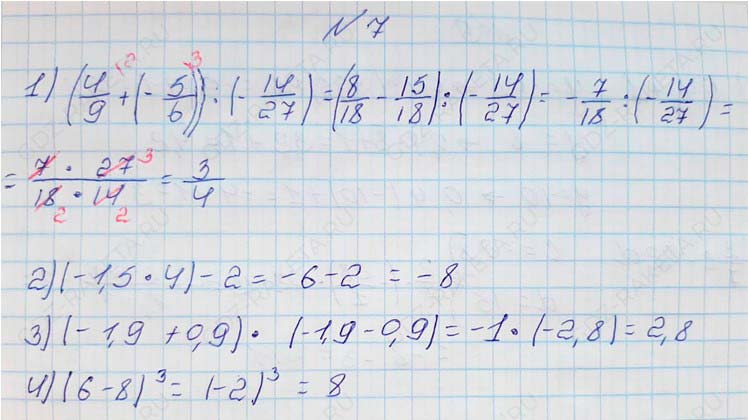 № 7
1) (4/9 + (- 5/6)) : (- 14/27) = (8/18 - 15/18) : (- 14/27) = - 7/18 : (- 14/27) =
= 7 · 27 / 18 · 14 = 3/4
2) (-1,5 · 4) - 2 = -6 - 2 = -8
3) (-1,9 + 0,9) · (-1,9 - 0,9) = -1 · (-2,8) = 2,8
4) (6 - 8)³ = (-2)³ = 8